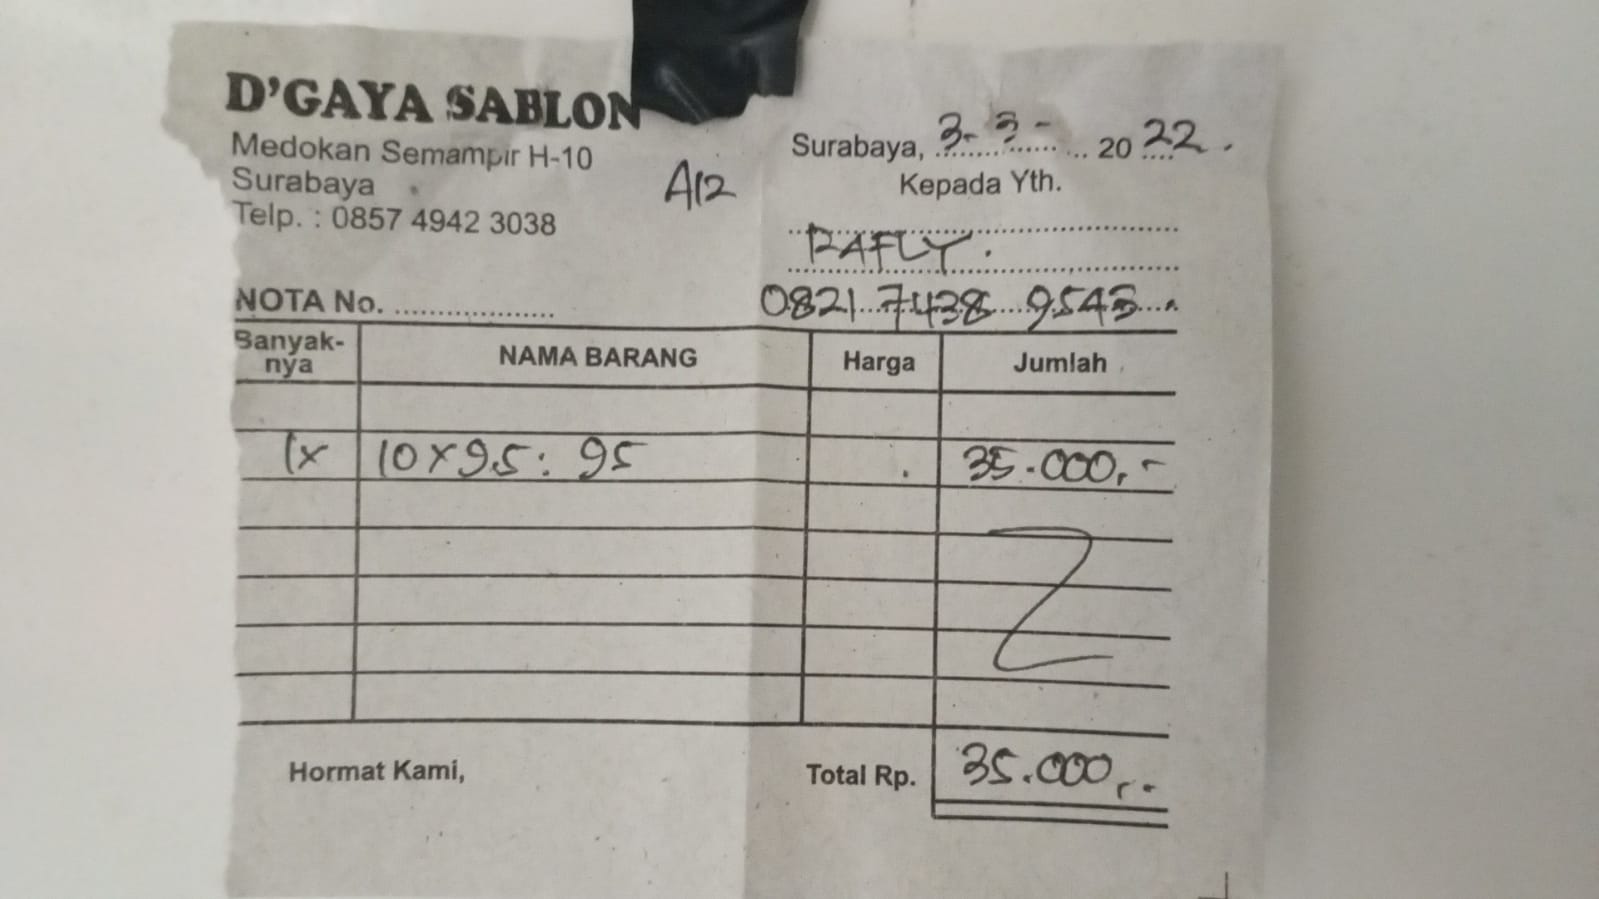 D'GAYA SABLON
Medokan Semampir H-10
Surabaya
Telp. : 0857 4942 3038
A12
Surabaya, 3-3-2022.
Kepada Yth.
RAFLY.
0821 7438 9543
NOTA No. ....................
Banyak-
nya
NAMA BARANG
Harga
Jumlah
1x 10x95: 95 35.000,-
Hormat Kami,
Total Rp. 35.000,-